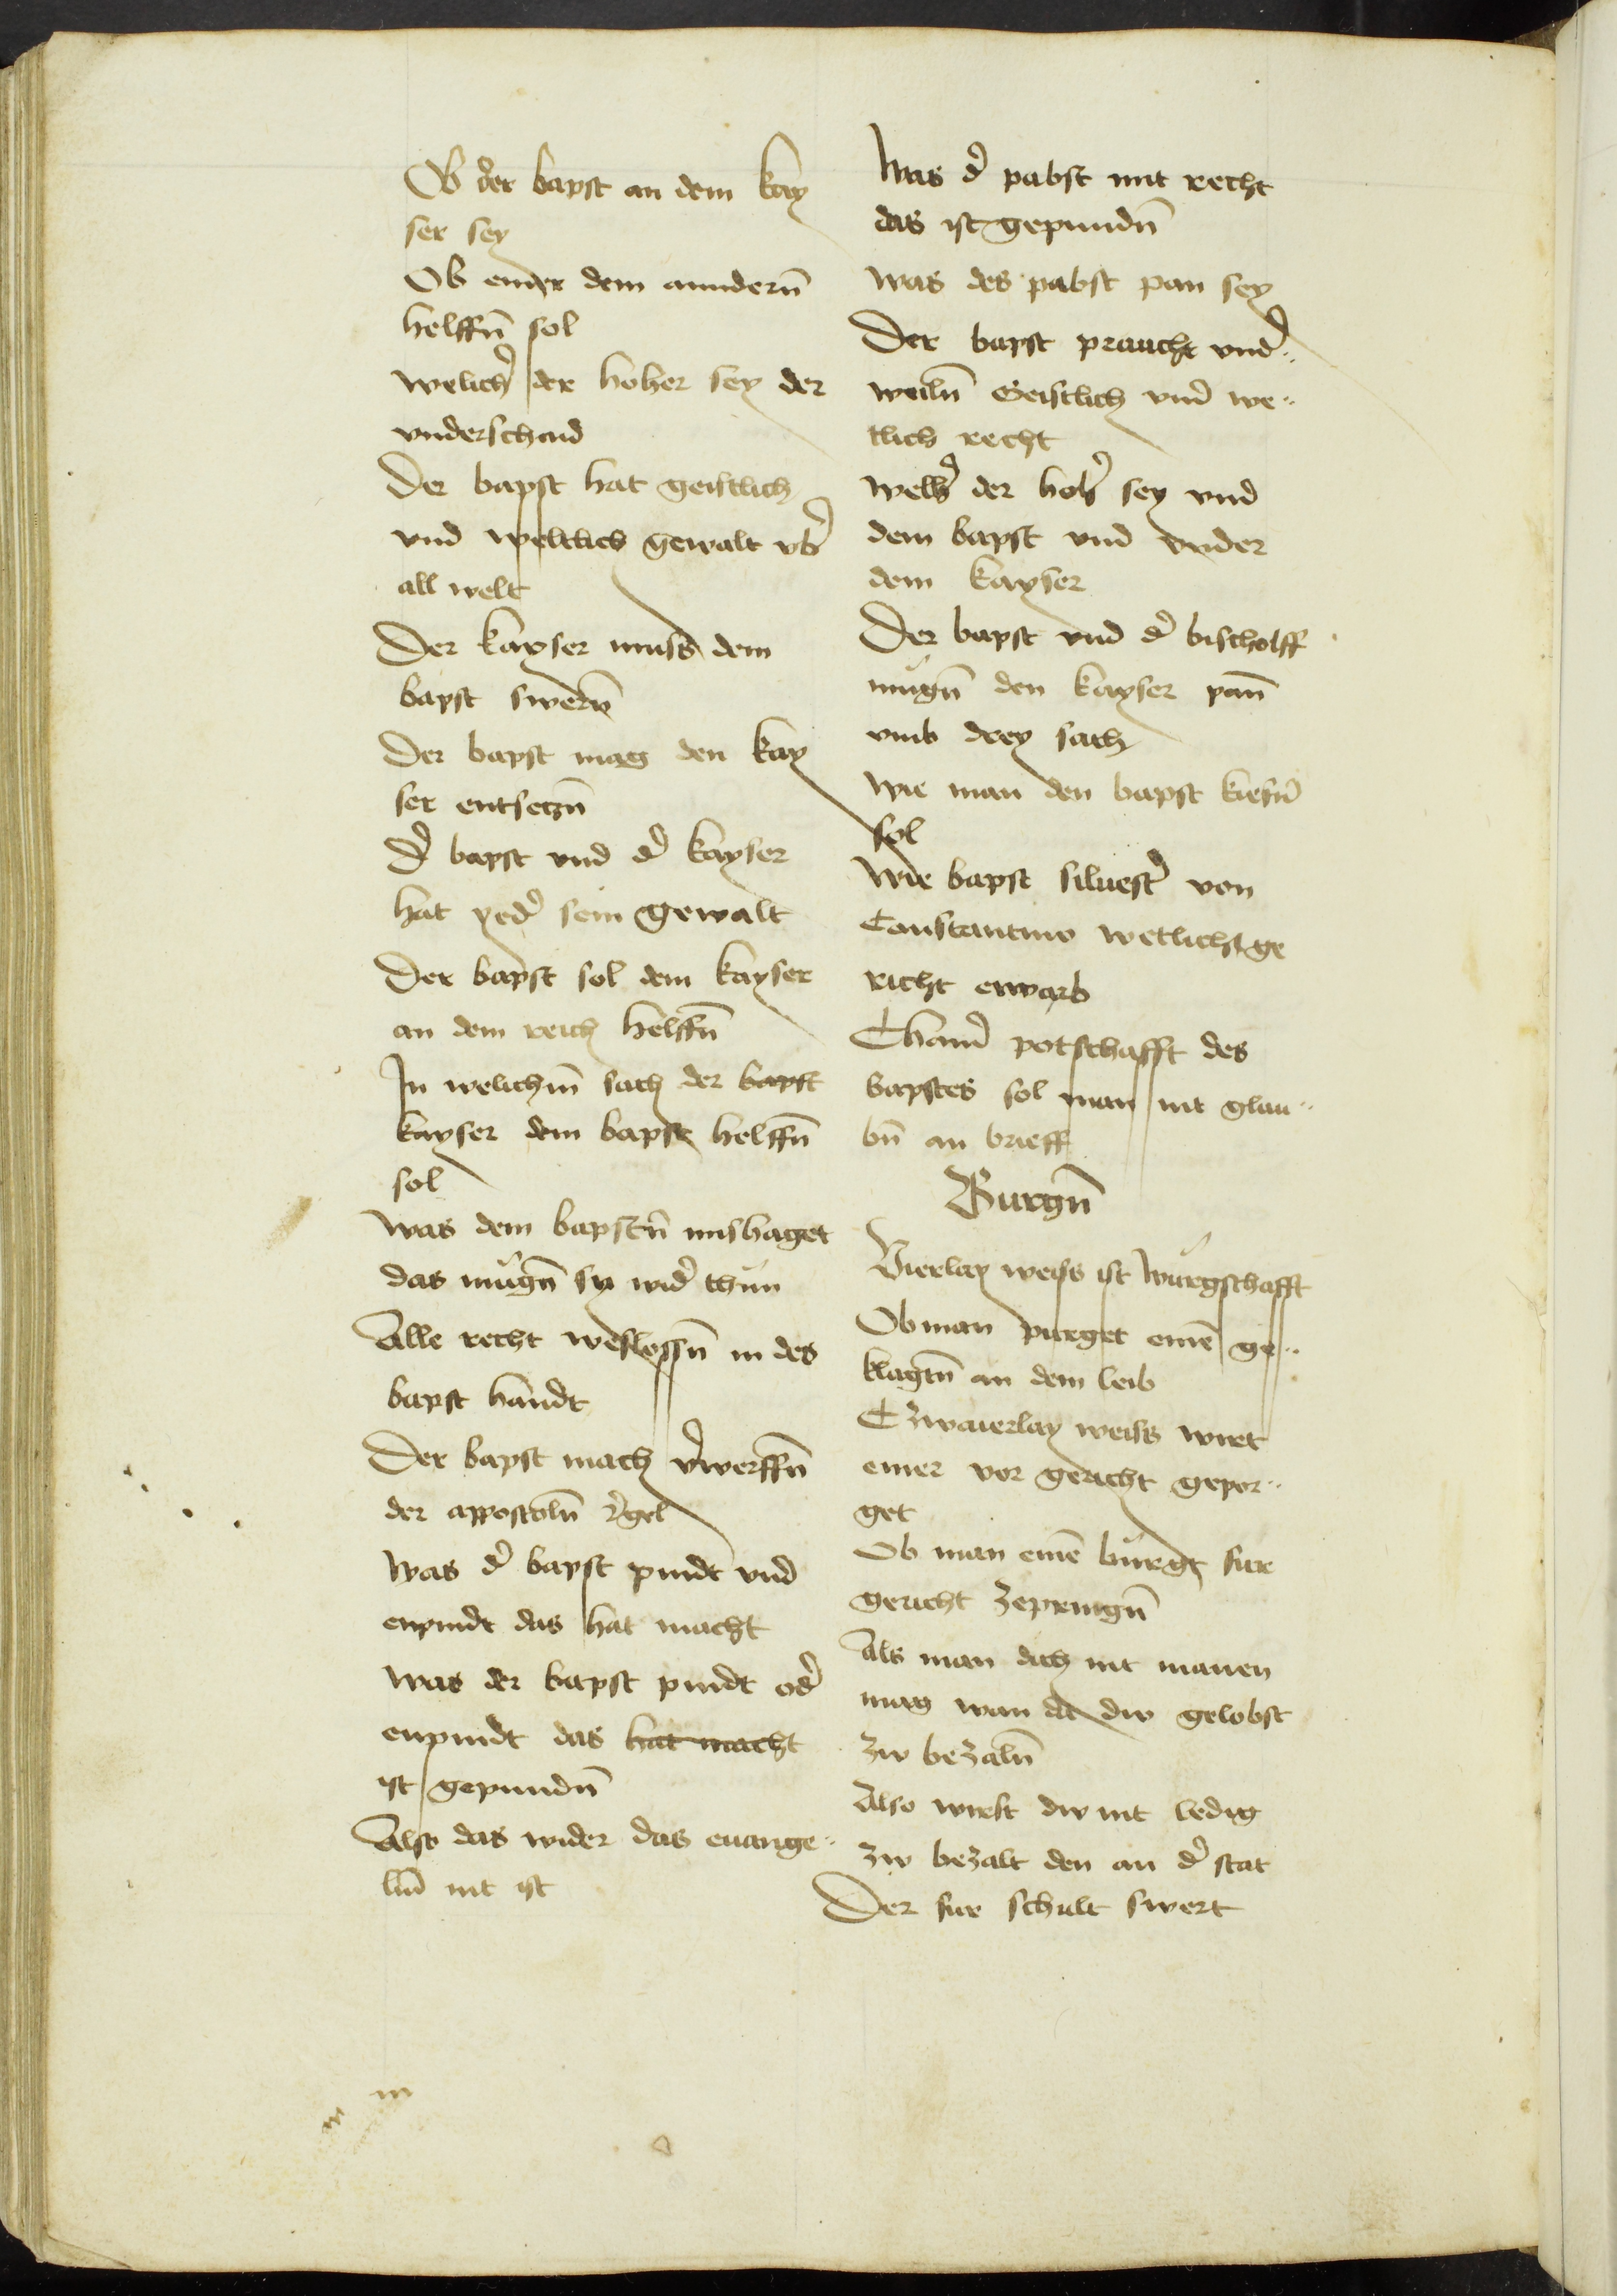 Ob der bapst an dem kay
ser sey
Ob einer dem annderñ
helffñ sol
welich͛ der hoher sey der
vnderschaid
Der bapst hat geistlich
vnd weltlich gewalt vb͛
all welt
Der kayser muss dem
bapst swerñ
Der bapst mag den kay
ser entseczñ
D͛ bapst vnd d͛ kayser
hat yed͛ sein gewalt
Der bapst sol dem kayser
an dem reich helffñ
In welichm̃ sach der bapst
kayser dem bapst helffñ
sol
was dem bapstñ mishaget
das mügñ sy wid͛ thün
Alle recht weslossñ in des
bapst handt
Der bapst mach v͛werffñ
der appostolñ r͛gel
Was d͛ bapst pindt vnd
enpindt das hat macht
was der bapst pindt od͛
enpindt das hat macht
ist gepundñ
Also das wider das euange„
liũ nit ist
Was d͛ pabst mit recht
das ist gepundñ
was des pabst pan sey
Der bapst praucht vnd͛„
weilñ Geistlich vnd we„
tlich recht
welh͛ der hoh͛ sey vnd
dem bapst vnd vnder
dem kayser
Der bapst vnd d͛ bischolff
mügñ den kayser pañ
vmb drey sach
wie man den bapst kiesñ
sol
Wie bapst siluest͛ von
Constantino wetlichs ge
richt erwarb
Chain͛ potschafft des
bapstes sol man nit glau„
bñ an brieff
Burgñ
Vierlay weiss ist würgschafft
Ob man purget ainẽ ge„
klagtñ an dem leib
Czwaierlay weiss wirt
einer vor gericht gepor„
get
Ob man ainẽ bürgt fur
gericht zepringñ
Als man dich nit manen
mag wan dw gelobst
zw bezalñ
Also wirst dw nit ledig
zw bezalt den an d͛ stat
Der fur schult swert
m